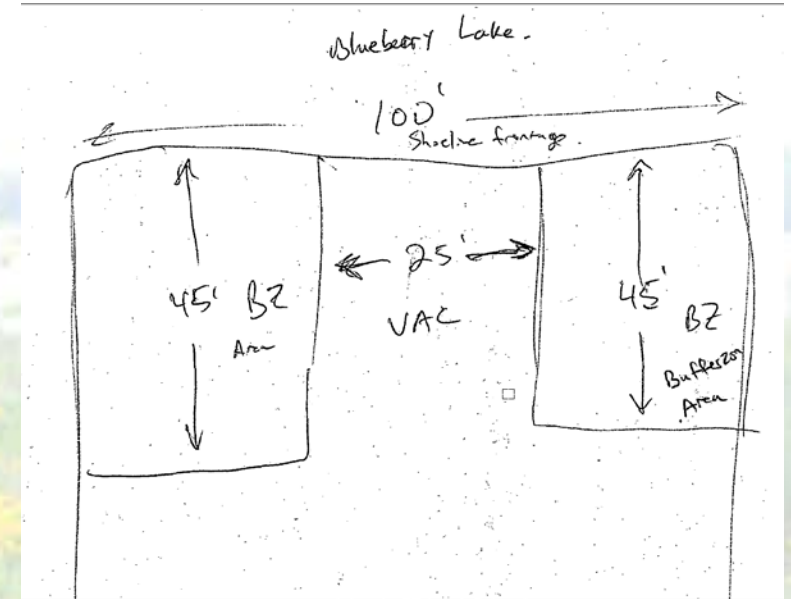 Blueberry Lake.
100'
Shoreline frontage.
25'
45' BZ
Area
VAC
45'
BZ
Bufferzon
Area